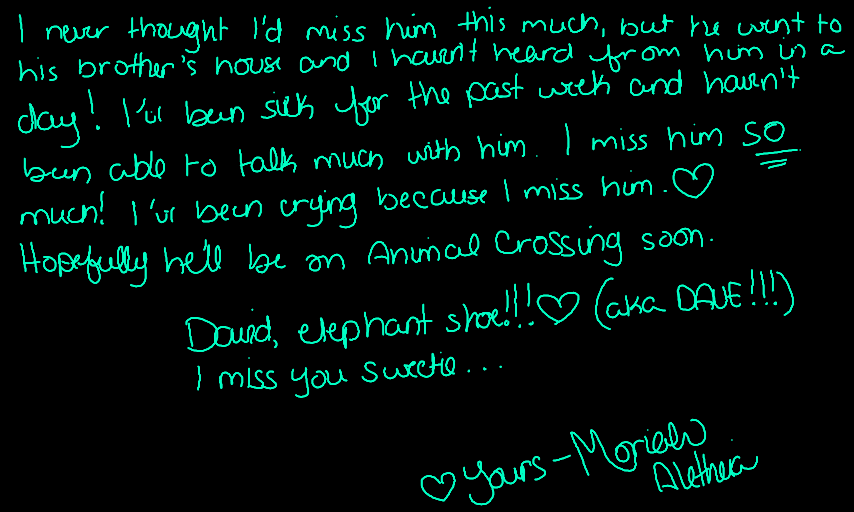 I never thought I'd miss him this much, but he went to
his brother's house and I haven't heard from him in a
day! I've been sick for the past week and haven't
been able to talk much with him. I miss him SO
much! I've been crying because I miss him. ♡
Hopefully he'll be on Animal Crossing soon.
David, elephant shoe!!! ♡ (aka DAVE!!!)
I miss you sweetie...
♡ Yours - Moriah
Aletheia